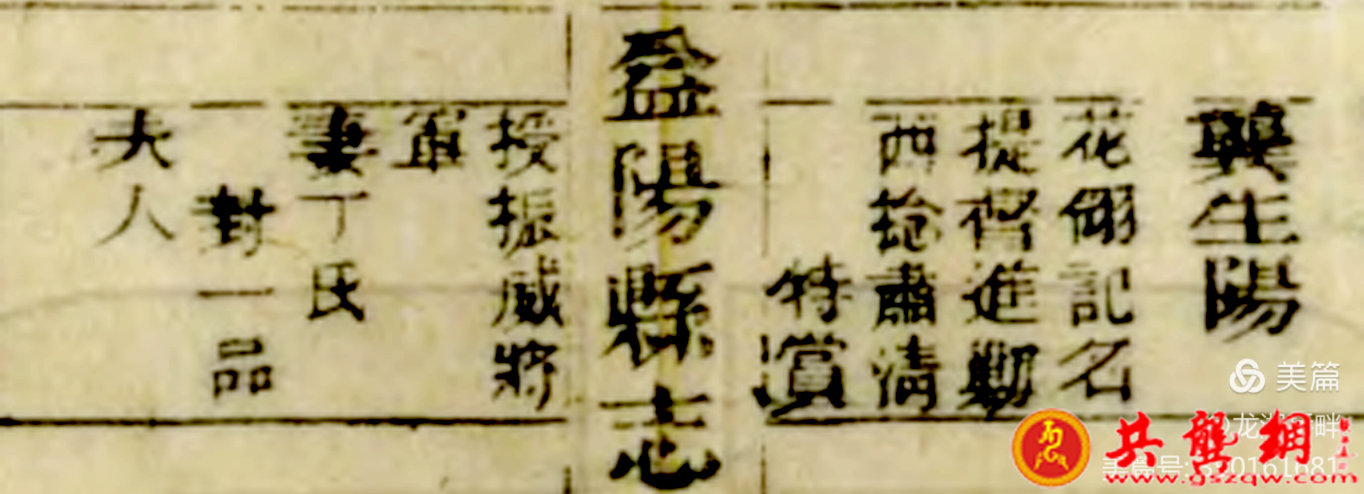 龔生陽
花翎記名
提督進勦
西捻肅清
特賞
益陽縣志
授振威將
軍
妻丁氏
封一品
夫人
美篇
共龔網
www.gszqw.com